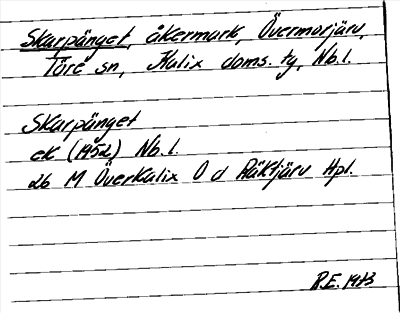 Skarpänget, åkermark, Övermorjärv,
Töre sn, Kalix doms. tg, Nb. l.
Skarpänget
ek (1952) Nb. l.
2b M Överkalix O d Räktjärv Hpl.
R.E. 1973